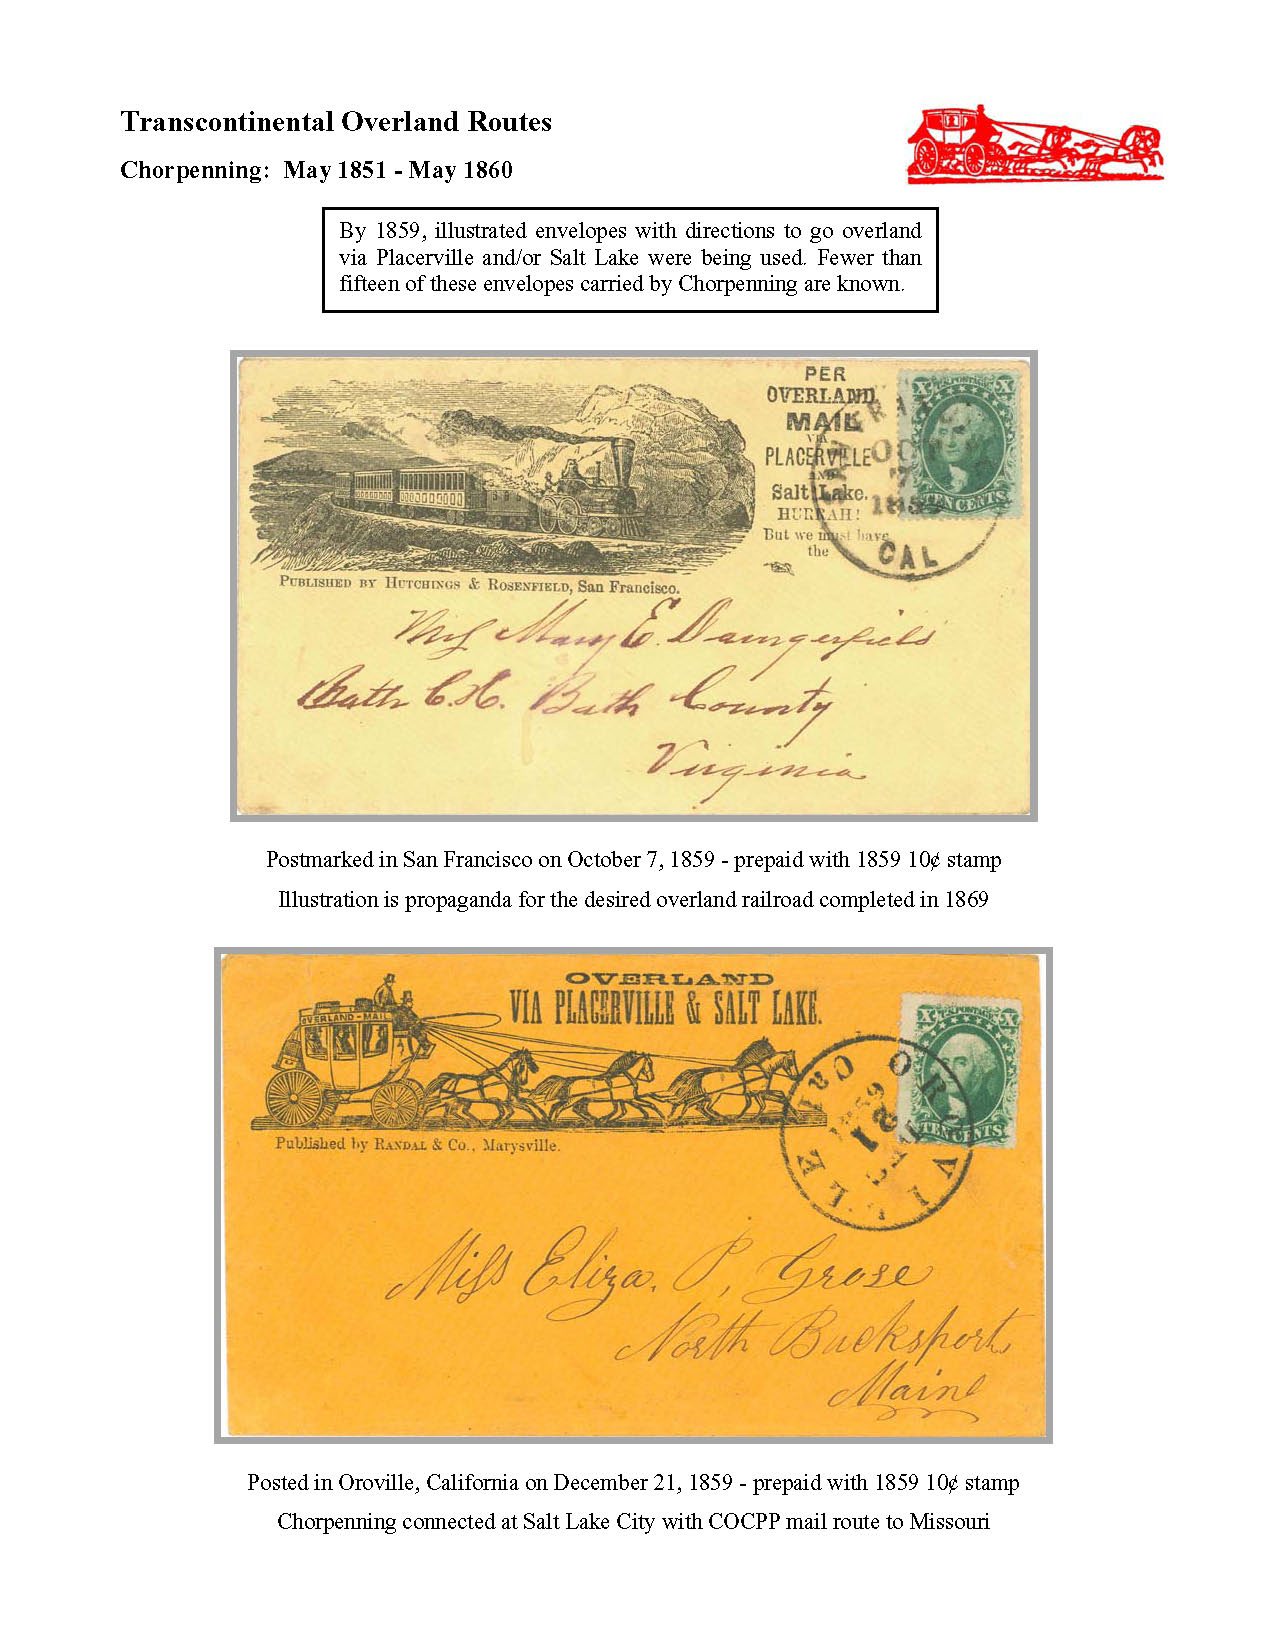 Transcontinental Overland Routes
Chorpenning: May 1851 - May 1860
By 1859, illustrated envelopes with directions to go overland
via Placerville and/or Salt Lake were being used. Fewer than
fifteen of these envelopes carried by Chorpenning are known.
PER
OVERLAND
MAIL
VIA
PLACERVILLE
AND
Salt Lake.
HURRAH!
But we must have
the
X U.S. POSTAGE X
TEN CENTS
OCT
7
1859
CAL
PUBLISHED BY HUTCHINGS & ROSENFIELD, San Francisco.
Miss Mary E. Daingerfield
Bath C.H. Bath County
Virginia
Postmarked in San Francisco on October 7, 1859 - prepaid with 1859 10¢ stamp
Illustration is propaganda for the desired overland railroad completed in 1869
OVERLAND
VIA PLACERVILLE & SALT LAKE.
OVERLAND-MAIL
X U.S. POSTAGE X
TEN CENTS
OROVILLE CAL
DEC
21
1859
Published by RANDAL & Co., Marysville.
Miss Eliza. P, Grose
North Bucksport,
Maine
Posted in Oroville, California on December 21, 1859 - prepaid with 1859 10¢ stamp
Chorpenning connected at Salt Lake City with COCPP mail route to Missouri